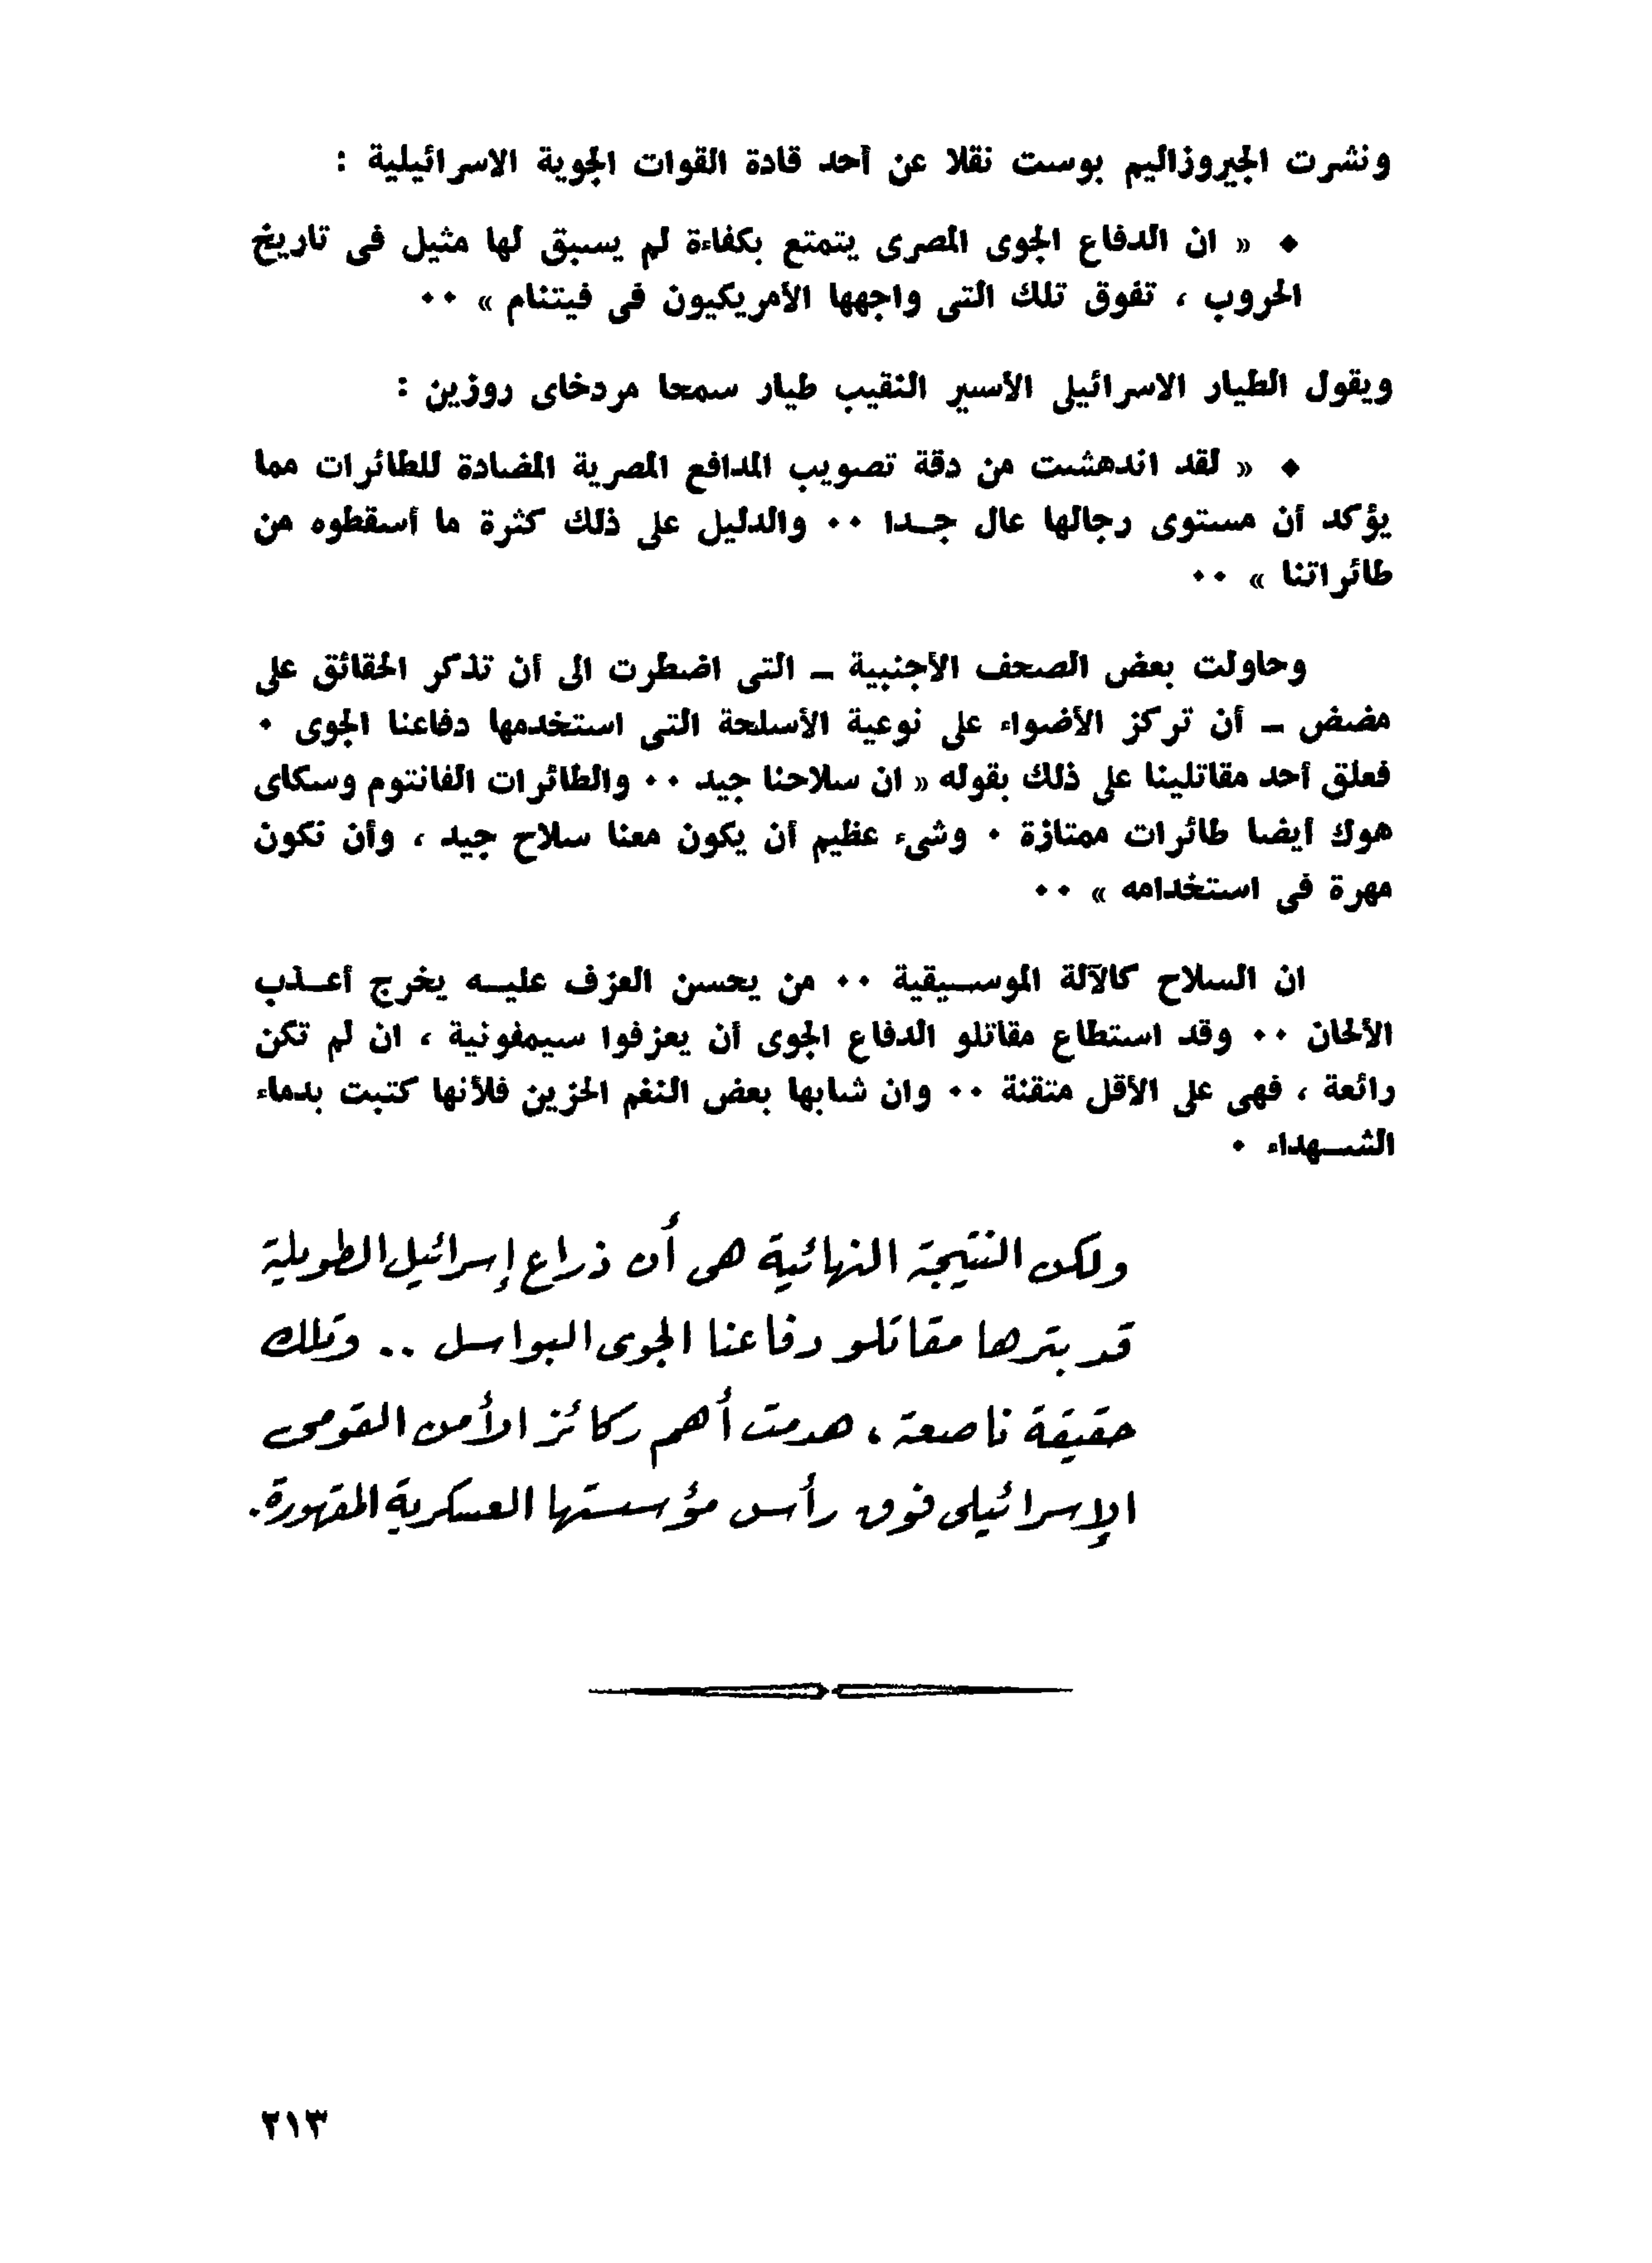 ونشرت الجيروزاليم بوست نقلا عن أحد قادة القوات الجوية الاسرائيلية :
♦ « ان الدفاع الجوى المصرى يتمتع بكفاءة لم يسبق لها مثيل فى تاريخ
الحروب ، تفوق تلك التى واجهها الأمريكيون فى فيتنام » ٠٠
ويقول الطيار الاسرائيلى الأسير النقيب طيار سمحا مردخاى روزين :
♦ « لقد اندهشت من دقة تصويب المدافع المصرية المضادة للطائرات مما
يؤكد أن مستوى رجالها عال جـدا ٠٠ والدليل على ذلك كثرة ما أسقطوه من
طائراتنا » ٠٠
وحاولت بعض الصحف الأجنبية ـ التى اضطرت الى أن تذكر الحقائق على
مضض ـ أن تركز الأضواء على نوعية الأسلحة التى استخدمها دفاعنا الجوى ٠
فعلق أحد مقاتلينا على ذلك بقوله « ان سلاحنا جيد ٠٠ والطائرات الفانتوم وسكاى
هوك أيضا طائرات ممتازة ٠ وشىء عظيم أن يكون معنا سلاح جيد ، وأن نكون
مهرة فى استخدامه » ٠٠
ان السلاح كالآلة الموسـيقية ٠٠ من يحسن العزف عليـه يخرج أعـذب
الألحان ٠٠ وقد استطاع مقاتلو الدفاع الجوى أن يعزفوا سيمفونية ، ان لم تكن
رائعة ، فهى على الأقل متقنة ٠٠ وان شابها بعض النغم الحزين فلأنها كتبت بدماء
الشـهداء ٠
ولكن النتيجة النهائية هى أن ذراع إسرائيل الطويلة
قد بترها مقاتلو دفاعنا الجوى البواسل .. وتلك
حقيقة ناصعة ، هدمت أهم ركائز الأمن القومى
الإسرائيلى فوق رأس مؤسستها العسكرية المقهورة.
٢١٣